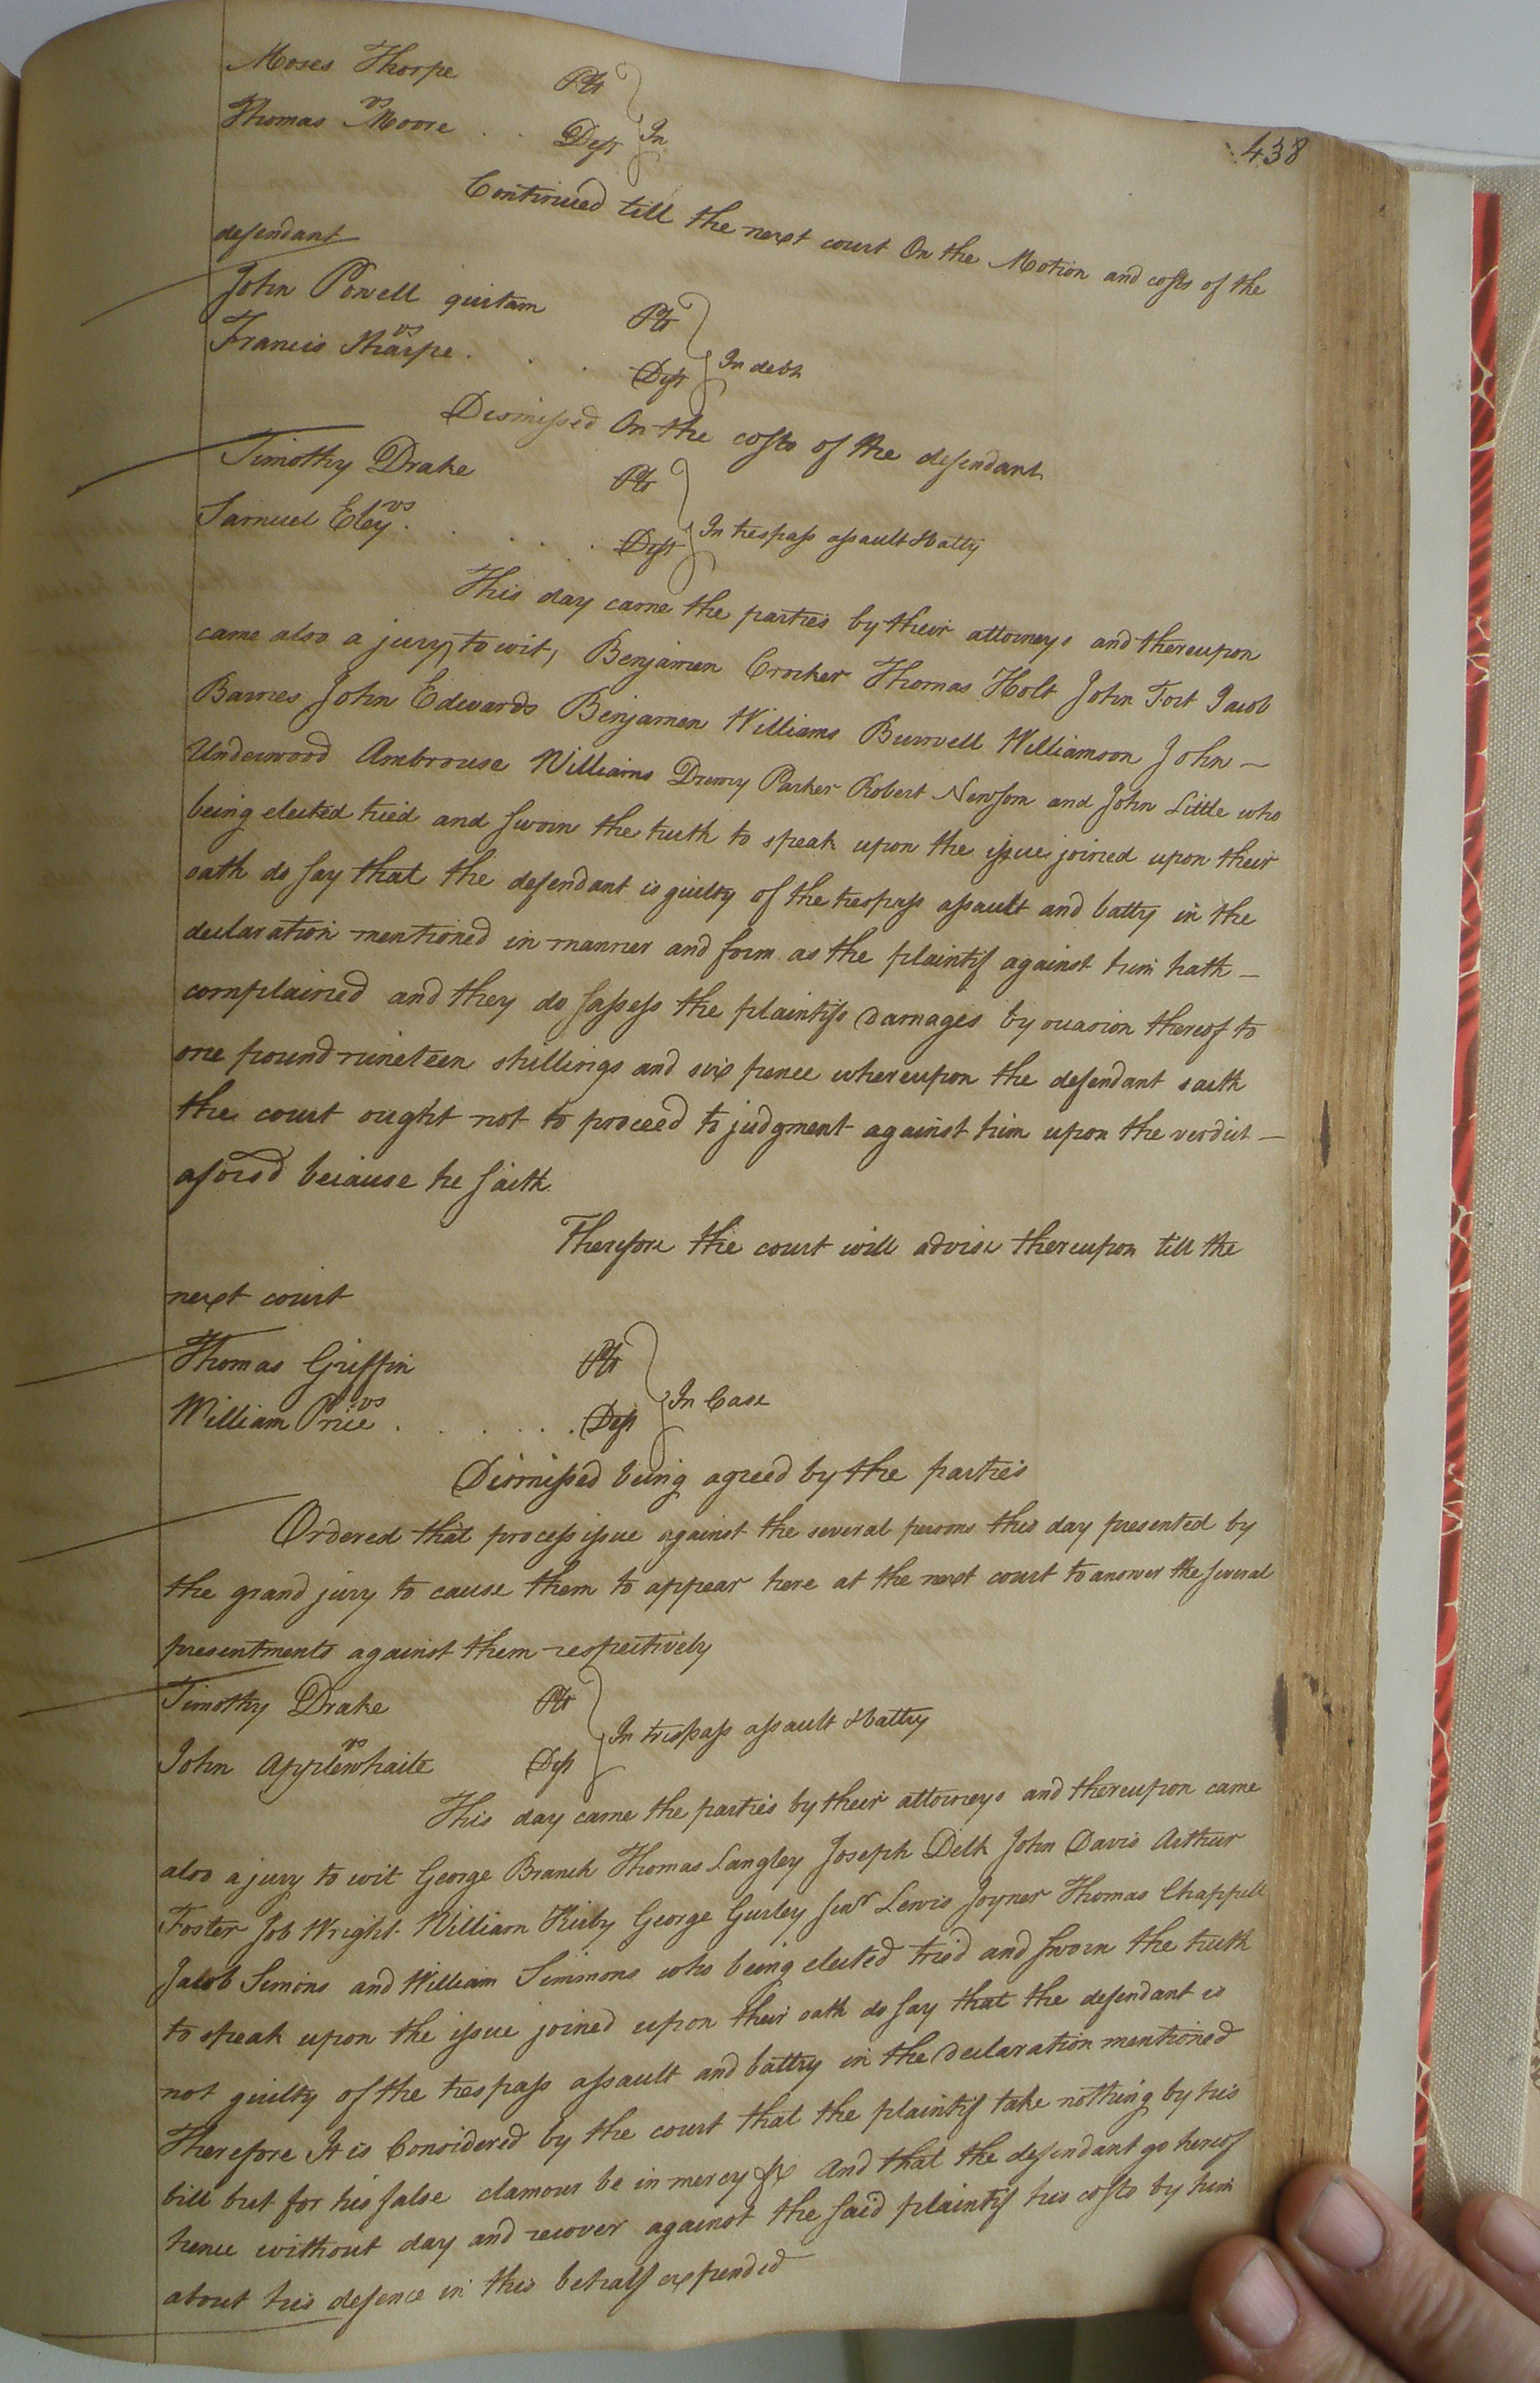 438
Moses Thorpe Plt
vs
Thomas Moore . . Deft In
Continued till the next court On the Motion and costs of the
defendant
John Powell quitam Plt
vs
Francis Sharpe . . . Deft In debt
Dismissed On the costs of the defendant
Timothy Drake Plt
vs
Samuel Eley . . . . . Deft In trespass assault & batty
This day came the parties by their attorneys and thereupon
came also a jury, to wit, Benjamen Crocker Thomas Holt John Fort Jacob
Barnes John Edwards Benjamen Williams Burwell Williamson John —
Underwood Ambrouse Williams Drewry Parker Robert Newsom and John Little who
being elected tried and sworn the truth to speak upon the issue joined upon their
oath do say that the defendant is guilty of the trespass assault and batty in the
declaration mentioned in manner and form as the plaintif against him hath —
complained and they do assess the plaintifs damages by ocasion thereof to
one pound nineteen shillings and six pence whereupon the defendant saith
the court ought not to proceed to judgment against him upon the verdict —
aforesd because he saith
Therefore the court will advise thereupon till the
next court
Thomas Griffin Plt
vs
William Price . . . . . . Deft In Case
Dismissed being agreed by the parties
Ordered that process issue against the several persons this day presented by
the grand jury to cause them to appear here at the next court to answer the several
presentments against them respectively
Timothy Drake Plt
vs
John Applewhaite Deft In trespass assault & battry
This day came the parties by their attorneys and thereupon came
also a jury to wit George Branch Thomas Langley Joseph Delk John Davis Arthur
Foster Job Wright William Kirby George Gurley senr Lewis Joyner Thomas Chappell
Jacob Simons and William Simmons who being elected tried and sworn the truth
to speak upon the issue joined upon their oath do say that the defendant is
not guilty of the trespass assault and battry in the declaration mentioned
Therefore It is Considered by the court that the plaintif take nothing by his
bill but for his false clamour be in mercy &c And that the defendant go hereof
hence without day and recover against the said plaintif his costs by him
about his defence in this behalf expended